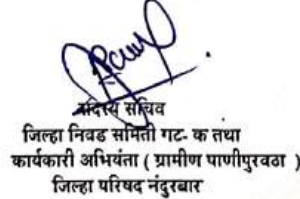 सदस्य सचिव
जिल्हा निवड समिती गट- क तथा
कार्यकारी अभियंता ( ग्रामीण पाणीपुरवठा )
जिल्हा परिषद नंदुरबार